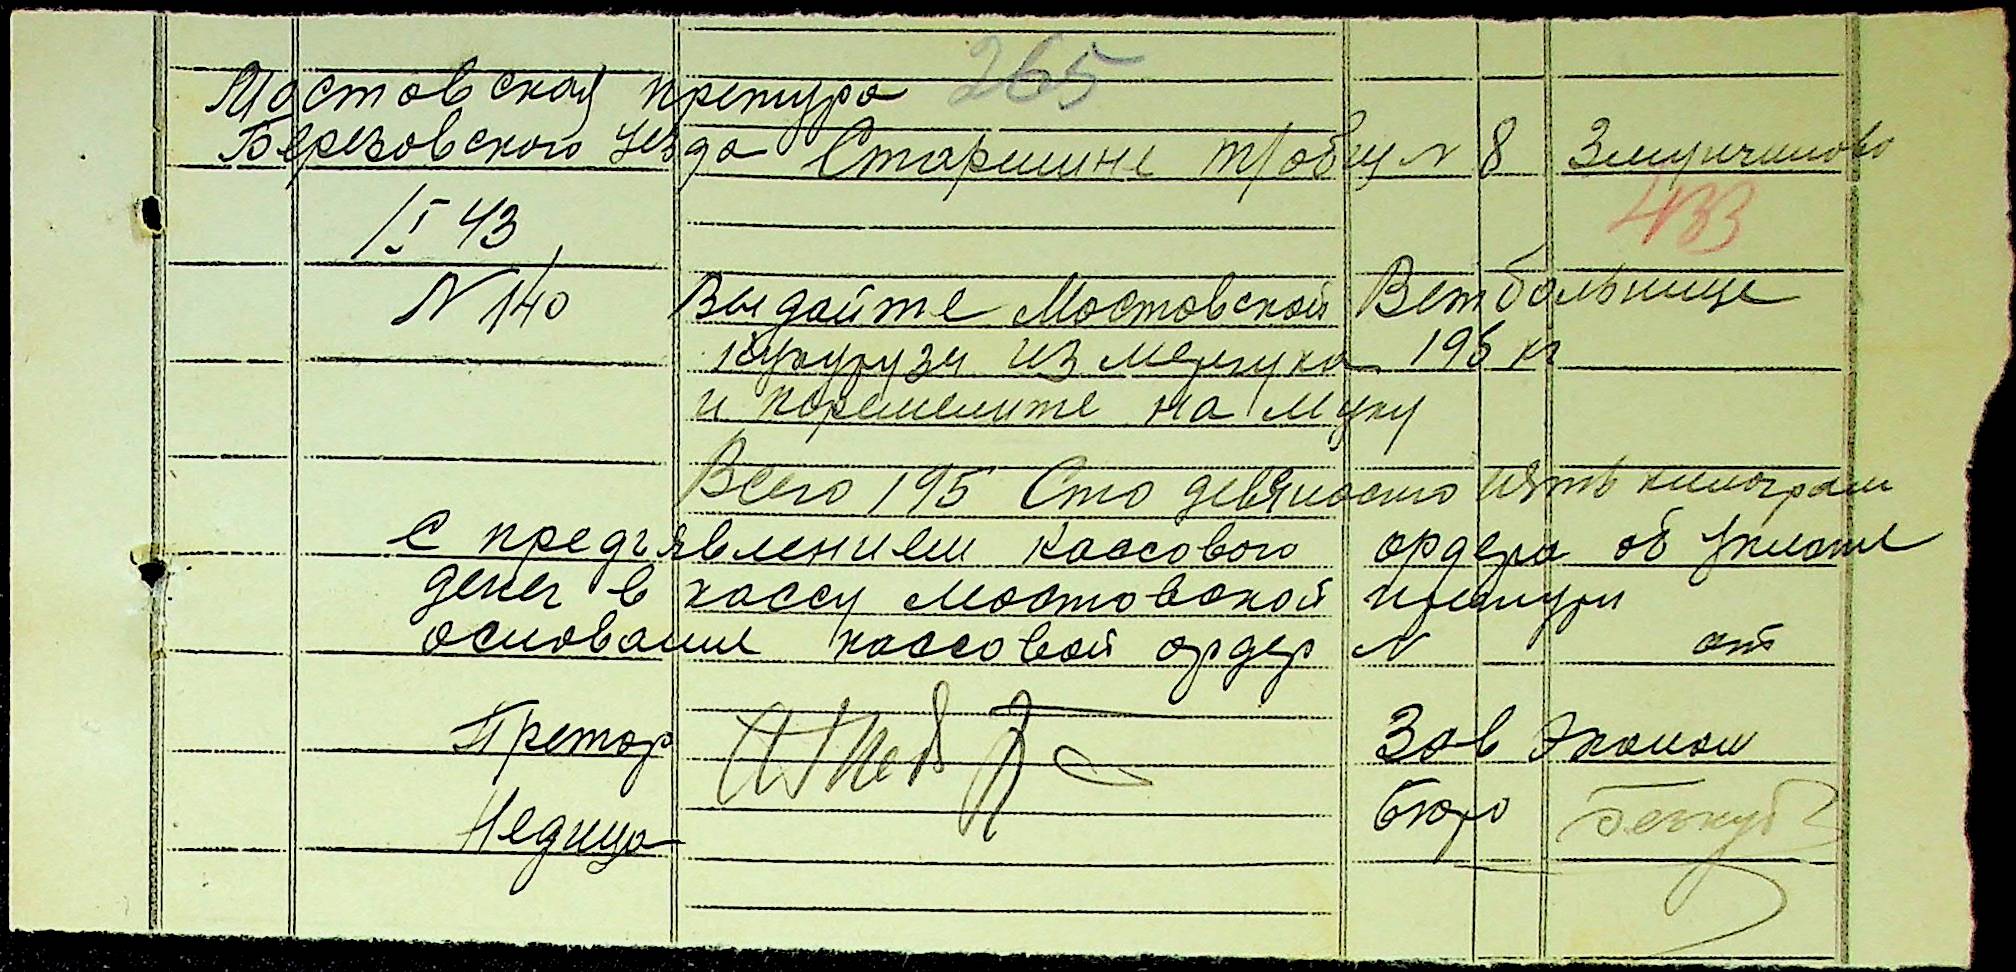 265
Мостовская претура
Березовского уезда Старшине т/общ N 8
433
1/I 43
N 140
Выдайте Мостовской Ветбольнице
кукурузы из мерчука 195 кг
и перемелите на муку
Всего 195 Сто девяносто пять килограм
С предъявлением кассового ордера об уплате
денег в кассу Мостовской претуры
основание кассовой ордер N от
Претор
Недица
Зав Эконом
бюро